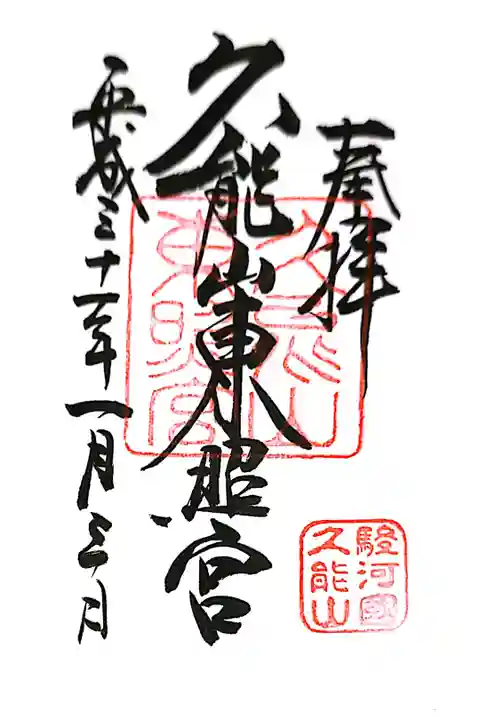 奉拝
久能山東照宮
平成三十一年一月三日
久能山
東照宮
駿河國
久能山